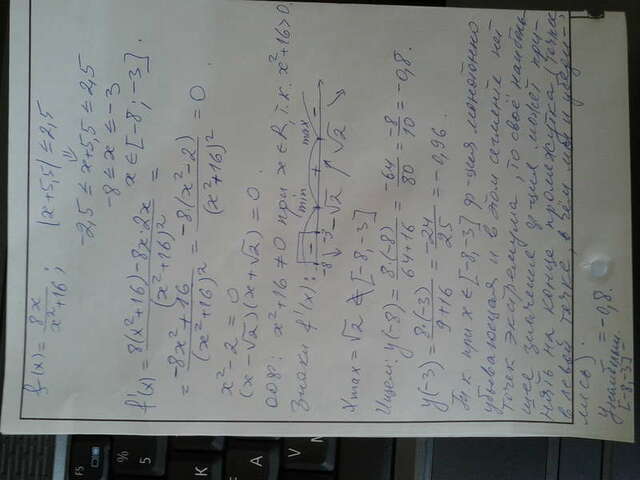 f(x) = 8x / x²+16 ; |x+5,5| ≤ 2,5
⇓
-2,5 ≤ x+5,5 ≤ 2,5
-8 ≤ x ≤ -3
x ∈ [-8; -3].
f'(x) = 8(x²+16) - 8x·2x / (x²+16)² =
= -8x²+16 / (x²+16)² = -8(x²-2) / (x²+16)² = 0.
x²-2 = 0
(x-√2)(x+√2) = 0.
ООФ: x²+16 ≠ 0 при x ∈ R, т.к. x²+16>0
Знаки f'(x): - - min + max -
-8 -3 -√2 √2
Xmax = √2 ∉ [-8; -3]
Ищем: y(-8) = 8(-8) / 64+16 = -64 / 80 = -8 / 10 = -0,8.
y(-3) = 8(-3) / 9+16 = -24 / 25 = -0,96.
Т.к при x ∈ [-8; -3] ф-ция монотонно
убывающая и в этом сегменте нет
точек экстремума, то своё наиболь-
шее значение ф-ция может при-
нять на конце промежутка (точнее
в левой точке, в чём мы и убеди-
лись).
Yнаибольш = -0,8.
[-8;-3]
F5
%
5
E
K
F
A
V